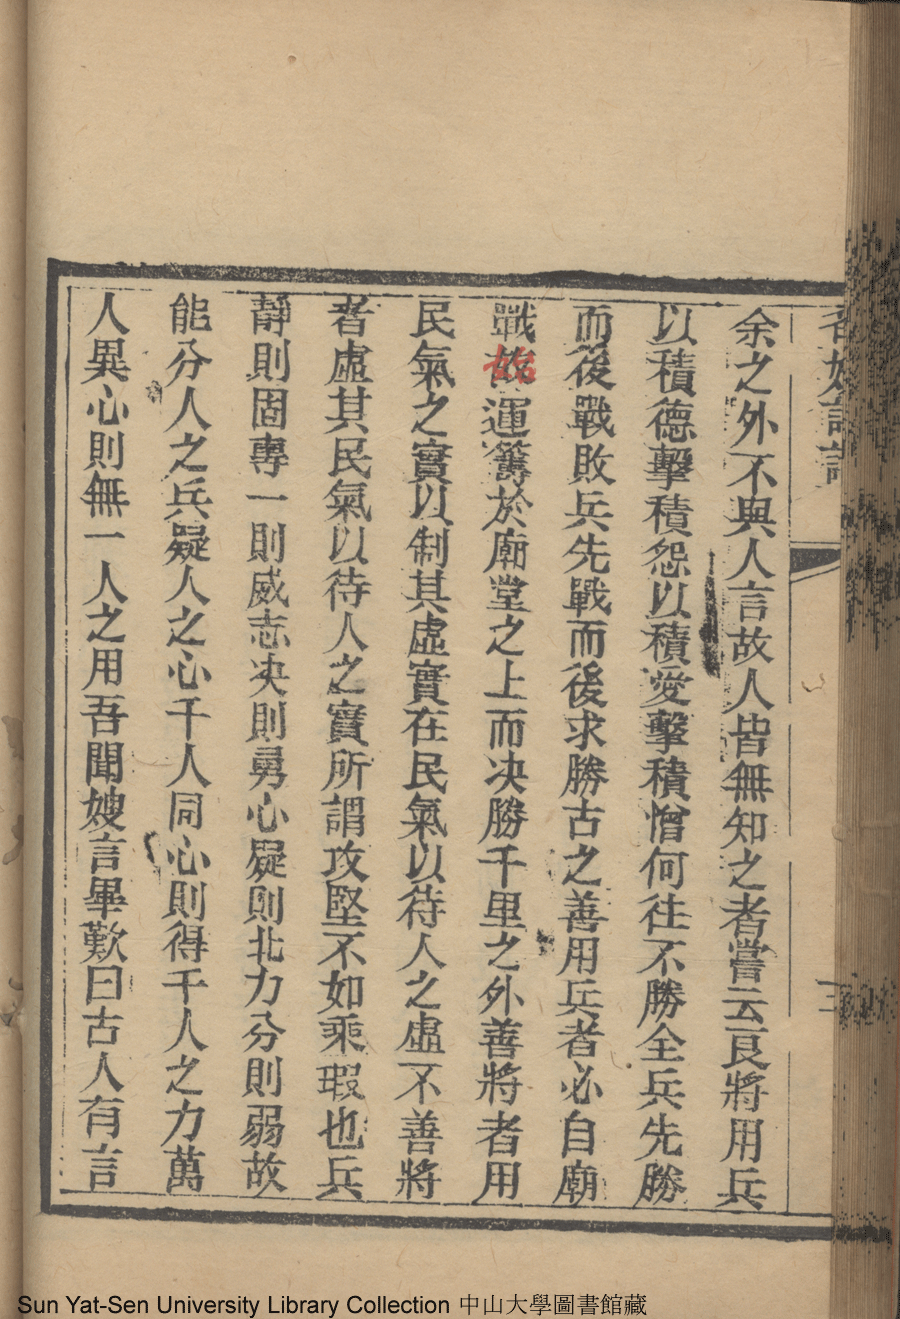 余之外不與人言故人皆無知之者嘗云良將用兵
以積德擊積怨以積愛擊積憎何往不勝全兵先勝
而後戰敗兵先戰而後求勝古之善用兵者必自廟
戰始運籌於廟堂之上而決勝千里之外善將者用
民氣之實以制其虛實在民氣以待人之虛不善將
者虛其民氣以待人之實所謂攻堅不如乘瑕也兵
靜則固專一則威志決則勇心疑則北力分則弱故
能分人之兵疑人之心千人同心則得千人之力萬
人異心則無一人之用吾聞嫂言畢歎曰古人有言
Sun Yat-Sen University Library Collection 中山大學圖書館藏